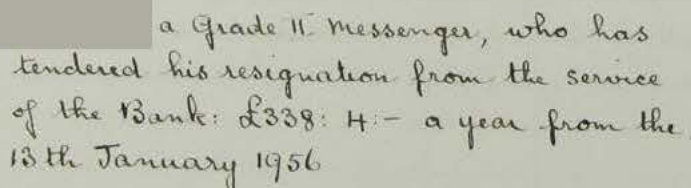 a Grade II. Messenger, who has
tendered his resignation from the service
of the Bank: £338: 4:- a year from the
13th January 1956